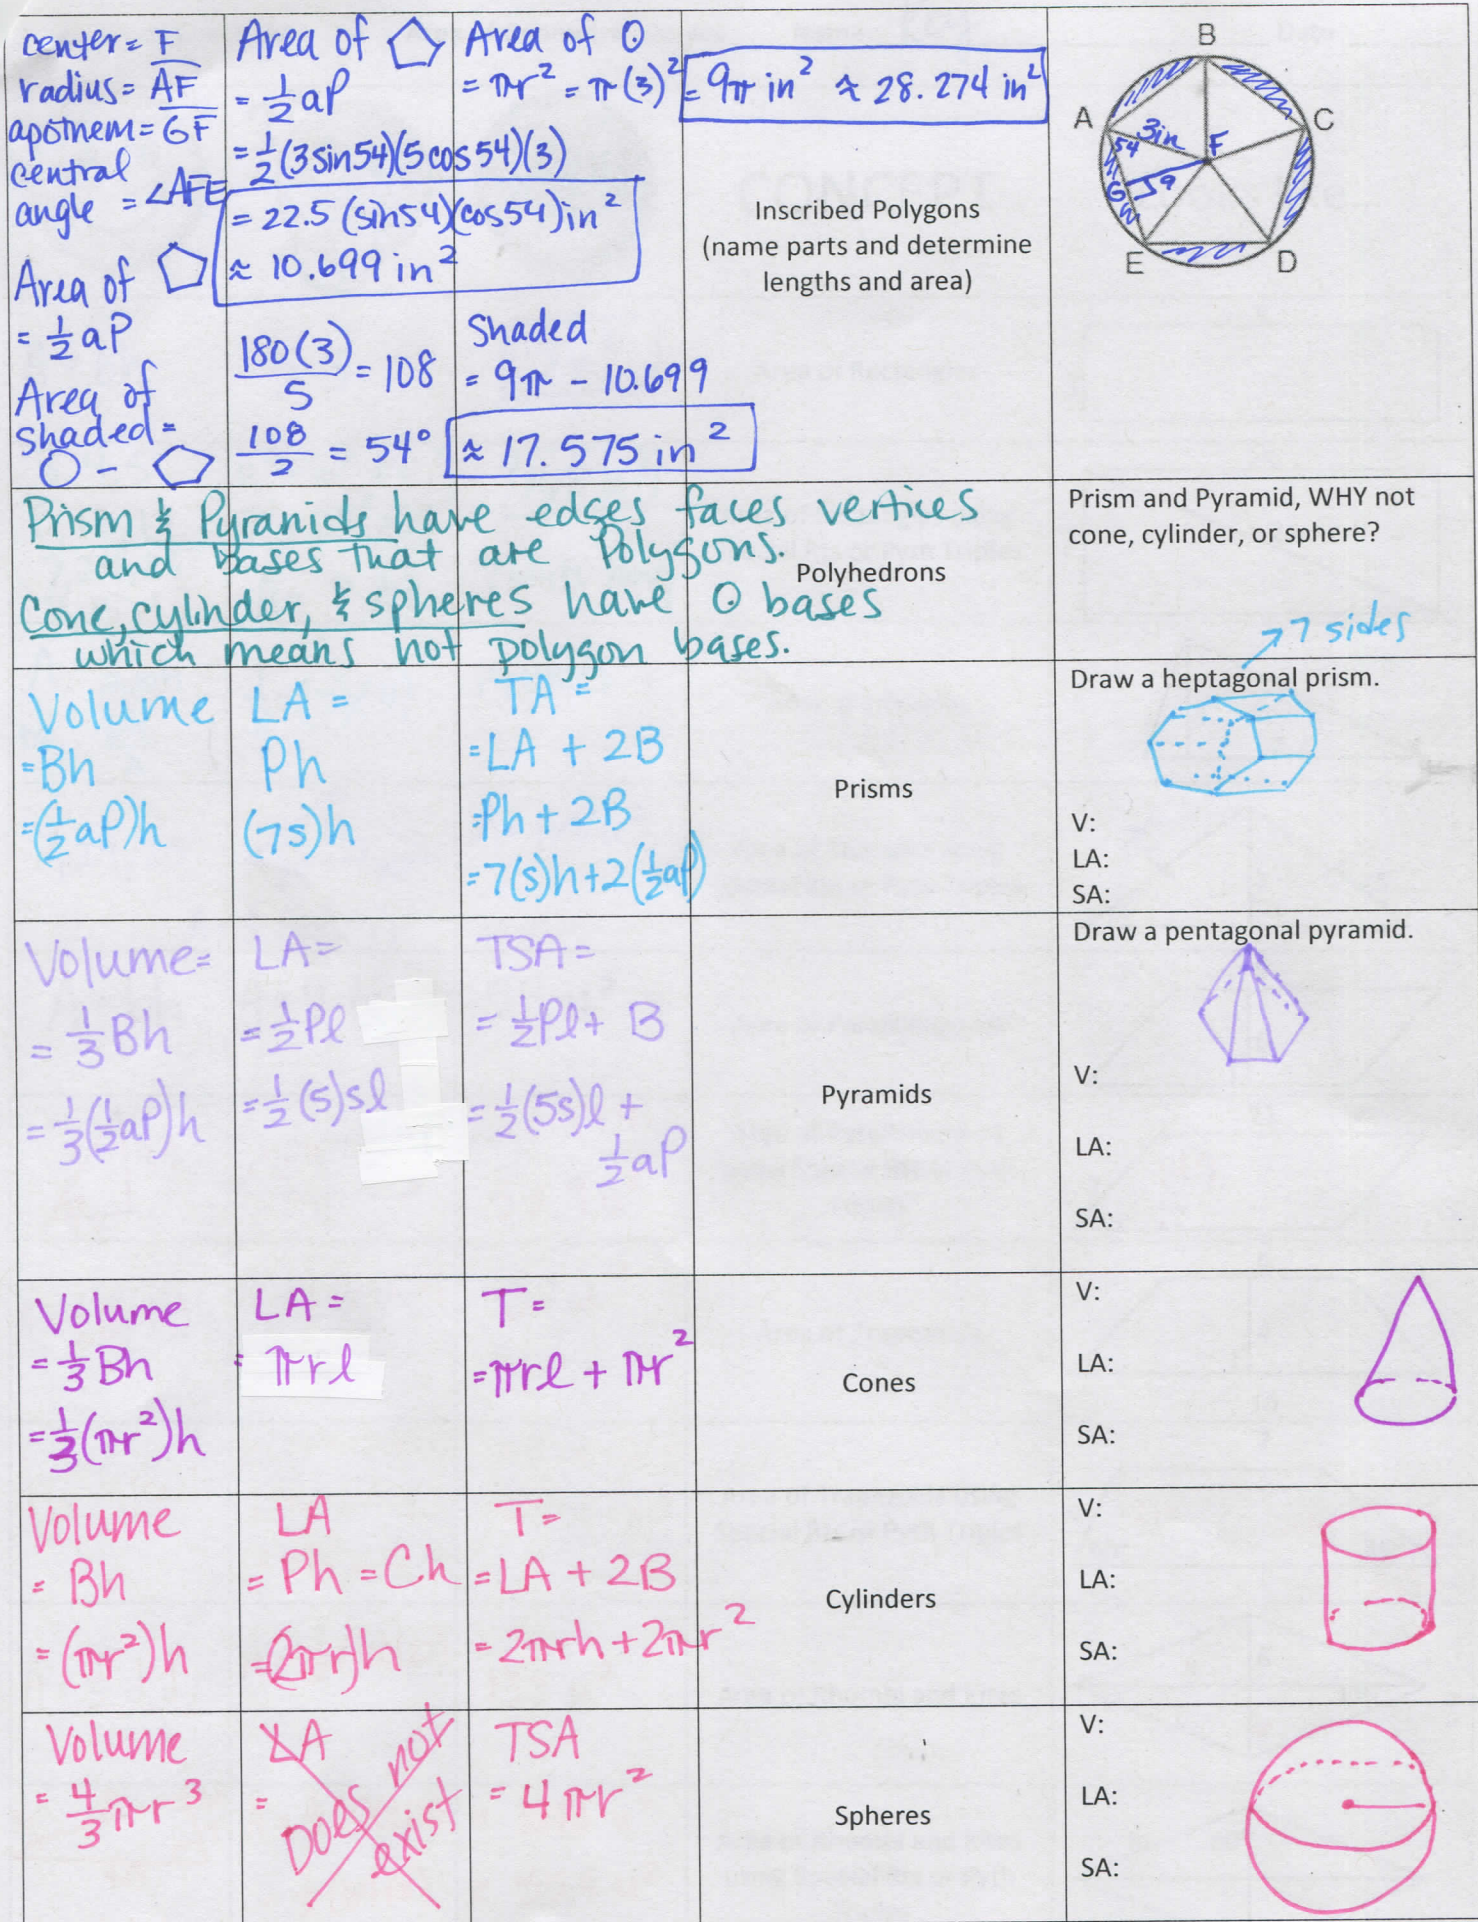 center = F
radius = AF
apothem = GF
central
angle = ∠AFE
Area of ⬠
= 1/2 aP
Area of
shaded =
○ - ⬠
Area of ⬠
= 1/2 aP
= 1/2 (3 sin 54)(5 cos 54)(3)
= 22.5 (sin 54)(cos 54) in²
≈ 10.699 in²
180(3)/5 = 108
108/2 = 54°
Area of ⊙
= πr² = π(3)² = 9π in² ≈ 28.274 in²
Shaded
= 9π - 10.699
≈ 17.575 in²
Inscribed Polygons
(name parts and determine
lengths and area)
B
A
C
3in
F
54
G
a
E
D
Prism & Pyranids have edges faces vertices
and bases that are Polygons.
Cone, cylinder, & spheres have O bases
which means not polygon bases.
Polyhedrons
Prism and Pyramid, WHY not
cone, cylinder, or sphere?
Volume
= Bh
= (1/2 aP)h
LA =
Ph
(7s)h
TA =
= LA + 2B
= Ph + 2B
= 7(s)h + 2(1/2 aP)
Prisms
→ 7 sides
Draw a heptagonal prism.
V:
LA:
SA:
Volume =
= 1/3 Bh
= 1/3 (1/2 aP)h
LA =
= 1/2 Pl
= 1/2 (5)sl
TSA =
= 1/2 Pl + B
= 1/2 (5s)l +
1/2 aP
Pyramids
Draw a pentagonal pyramid.
V:
LA:
SA:
Volume
= 1/3 Bh
= 1/3 (πr²)h
LA =
= πrl
T =
= πrl + πr²
Cones
V:
LA:
SA:
Volume
= Bh
= (πr²)h
LA
= Ph = Ch
= (2πr)h
T =
= LA + 2B
= 2πrh + 2πr²
Cylinders
V:
LA:
SA:
Volume
= 4/3 πr³
LA
=
Does not
exist
TSA
= 4πr²
Spheres
V:
LA:
SA: